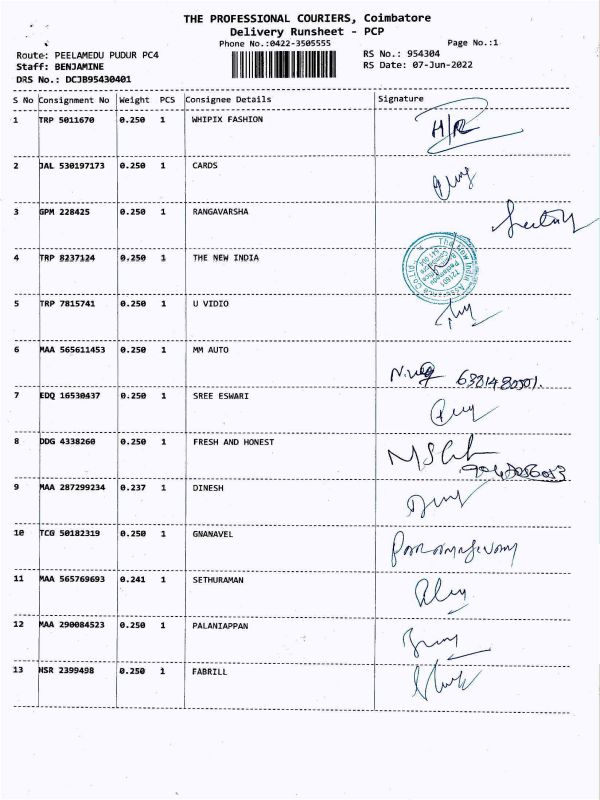 THE PROFESSIONAL COURIERS, Coimbatore
Delivery Runsheet - PCP
Phone No.:0422-3505555
Page No.:1
Route: PEELAMEDU PUDUR PC4
RS No.: 954304
Staff: BENJAMINE
RS Date: 07-Jun-2022
DRS No.: DCJB95430401
S No Consignment No Weight PCS Consignee Details Signature
1 TRP 5011670 0.250 1 WHIPIX FASHION H/R
2 JAL 530197173 0.250 1 CARDS
3 GPM 228425 0.250 1 RANGAVARSHA
4 TRP 8237124 0.250 1 THE NEW INDIA
The New India Assurance Co. Ltd.
5 TRP 7815741 0.250 1 U VIDIO
6 MAA 565611453 0.250 1 MM AUTO
7 EDQ 16530437 0.250 1 SREE ESWARI
8 DDG 4338260 0.250 1 FRESH AND HONEST
9 MAA 287299234 0.237 1 DINESH
10 TCG 50182319 0.250 1 GNANAVEL
11 MAA 565769693 0.241 1 SETHURAMAN
12 MAA 290084523 0.250 1 PALANIAPPAN
13 NSR 2399498 0.250 1 FABRILL